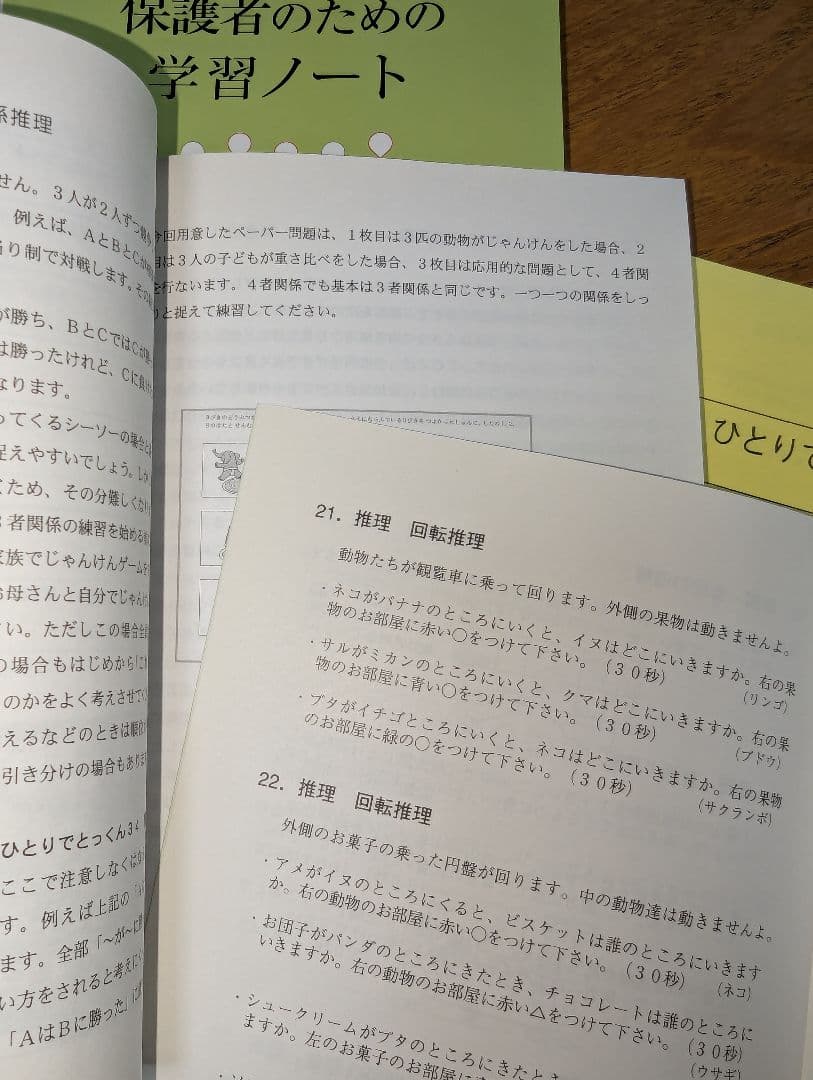 保護者のための
学習ノート
係推理
せん。３人が２人ずつ
例えば、ＡとＢとＣが
り制で対戦します。その
が勝ち、ＢとＣではＣが
は勝ったけれど、Ｃに負け
なります。
ってくるシーソーの場合
捉えやすいでしょう。しか
ため、その分難しくなり
３者関係の練習を始める
家族でじゃんけんゲームを
お母さんと自分でじゃんけ
さい。ただしこの場合
の場合もはじめから「
のかをよく考えさせて
えるなどのときは順
引き分けの場合もあり
ひとりでとっくん34
ここで注意しなくはな
す。例えば上記の「
ます。全部「〜が〜に
い方をされると考えに
「ＡはＢに勝った」
今回用意したペーパー問題は、１枚目は３匹の動物がじゃんけんをした場合、２
目は３人の子どもが重さ比べをした場合、３枚目は応用的な問題として、４者関
を行ないます。４者関係でも基本は３者関係と同じです。一つ一つの関係をしっ
りと捉えて練習してください。
ひとりで
21．推理　回転推理
動物たちが観覧車に乗って回ります。外側の果物は動きませんよ。
・ネコがバナナのところにいくと、イヌはどこにいきますか。右の果
物のお部屋に赤い○をつけて下さい。（３０秒）
（リンゴ）
・サルがミカンのところにいくと、クマはどこにいきますか。右の果
物のお部屋に青い○をつけて下さい。（３０秒）
（ブドウ）
・ブタがイチゴところにいくと、ネコはどこにいきますか。右の果物
のお部屋に緑の○をつけて下さい。（３０秒）
（サクランボ）
22．推理　回転推理
外側のお菓子の乗った円盤が回ります。中の動物達は動きませんよ。
・アメがイヌのところにくると、ビスケットは誰のところにいきます
か。右の動物のお部屋に赤い○をつけて下さい。（３０秒）
（ネコ）
・お団子がパンダのところにきたとき、チョコレートは誰のところに
いきますか。右の動物のお部屋に赤い△をつけて下さい。（３０秒）
（ウサギ）
・シュークリームがブタのところにきたとき
ますか。左のお菓子のお部屋に